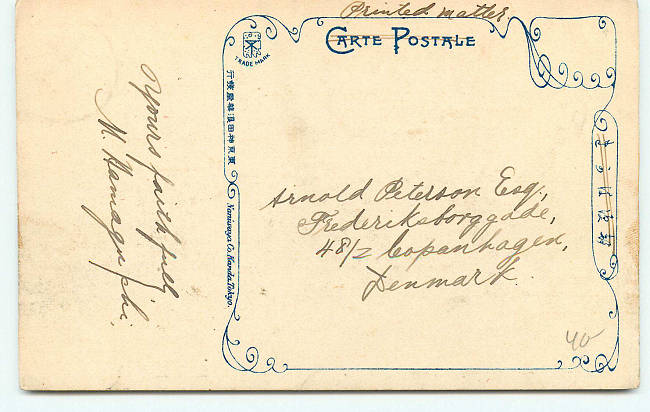 Printed matter
CARTE POSTALE
TRADE MARK
東京神田浪華屋發行
Naniwaya Co. Kanda Tokyo.
きかは便郵
Arnold Peterson Esq.,
Frederiksborggade,
48/2 Copanhagen,
Denmark.
Yours faithfully,
M. Hamaguchi.
40